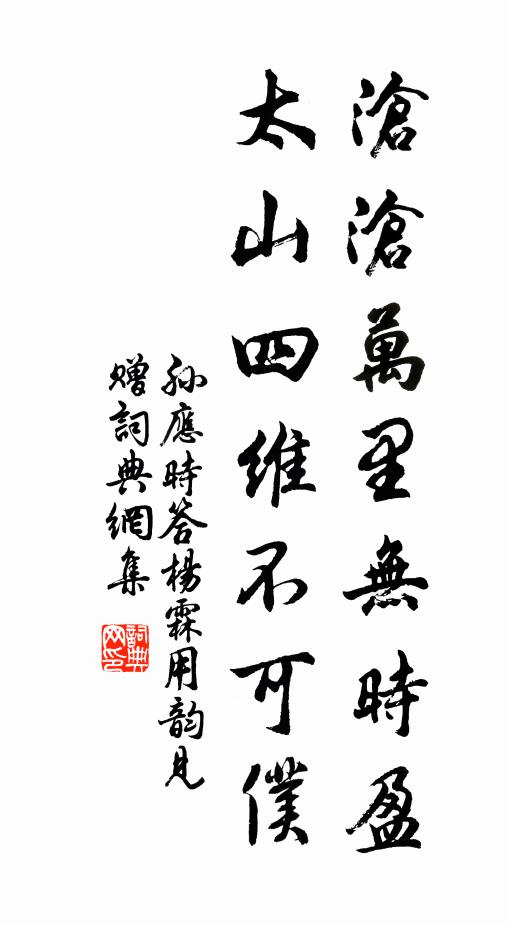 滄滄萬里無時盈
太山四維不可僕
孫應時答楊霖用韵見
贈詞典網集
詞典
网印